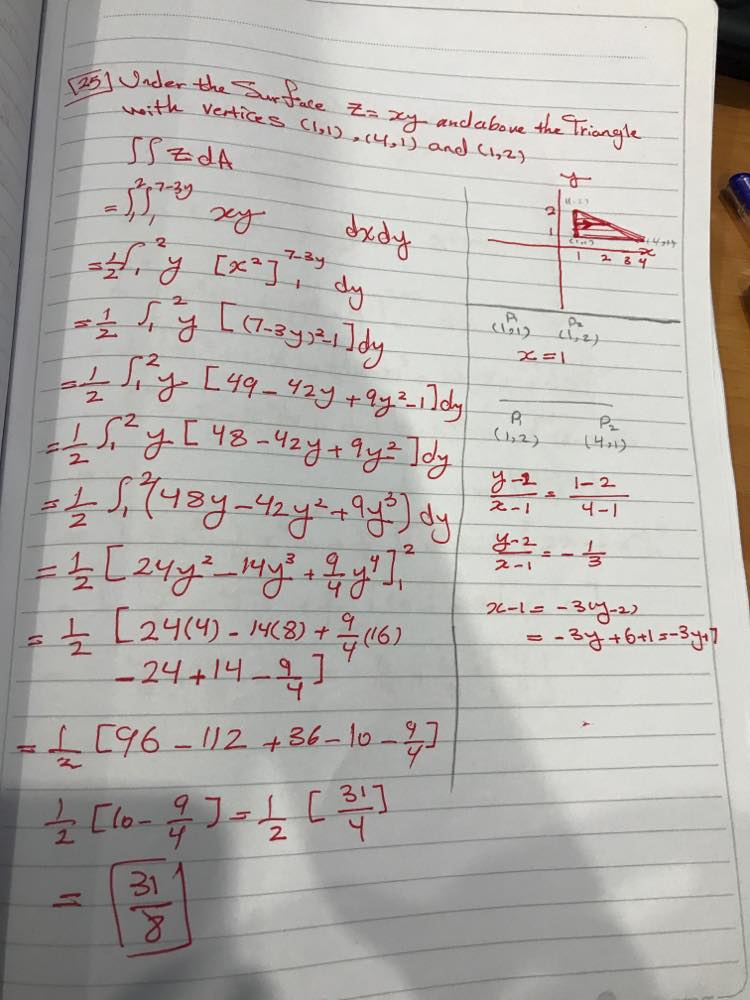 [25] Under the Surface z = xy and above the Triangle
with vertices (1,1), (4,1) and (1,2)
∫∫ z dA
= ∫₁² ∫₁^{7-3y} xy dx dy
= 1/2 ∫₁² y [x²]₁^{7-3y} dy
= 1/2 ∫₁² y [(7-3y)²-1] dy
= 1/2 ∫₁² y [49 - 42y + 9y² - 1] dy
= 1/2 ∫₁² y [48 - 42y + 9y²] dy
= 1/2 ∫₁² (48y - 42y² + 9y³) dy
= 1/2 [24y² - 14y³ + 9/4 y⁴]₁²
= 1/2 [24(4) - 14(8) + 9/4 (16)
- 24 + 14 - 9/4]
= 1/2 [96 - 112 + 36 - 10 - 9/4]
1/2 [10 - 9/4] = 1/2 [31/4]
= 31/8
y
2
1
1 2 3 4
x
P₁ P₂
(1,1) (1,2)
x = 1
P₁ P₂
(1,2) (4,1)
y-2/x-1 = 1-2/4-1
y-2/x-1 = - 1/3
x-1 = -3(y-2)
= -3y + 6 + 1 = -3y + 7